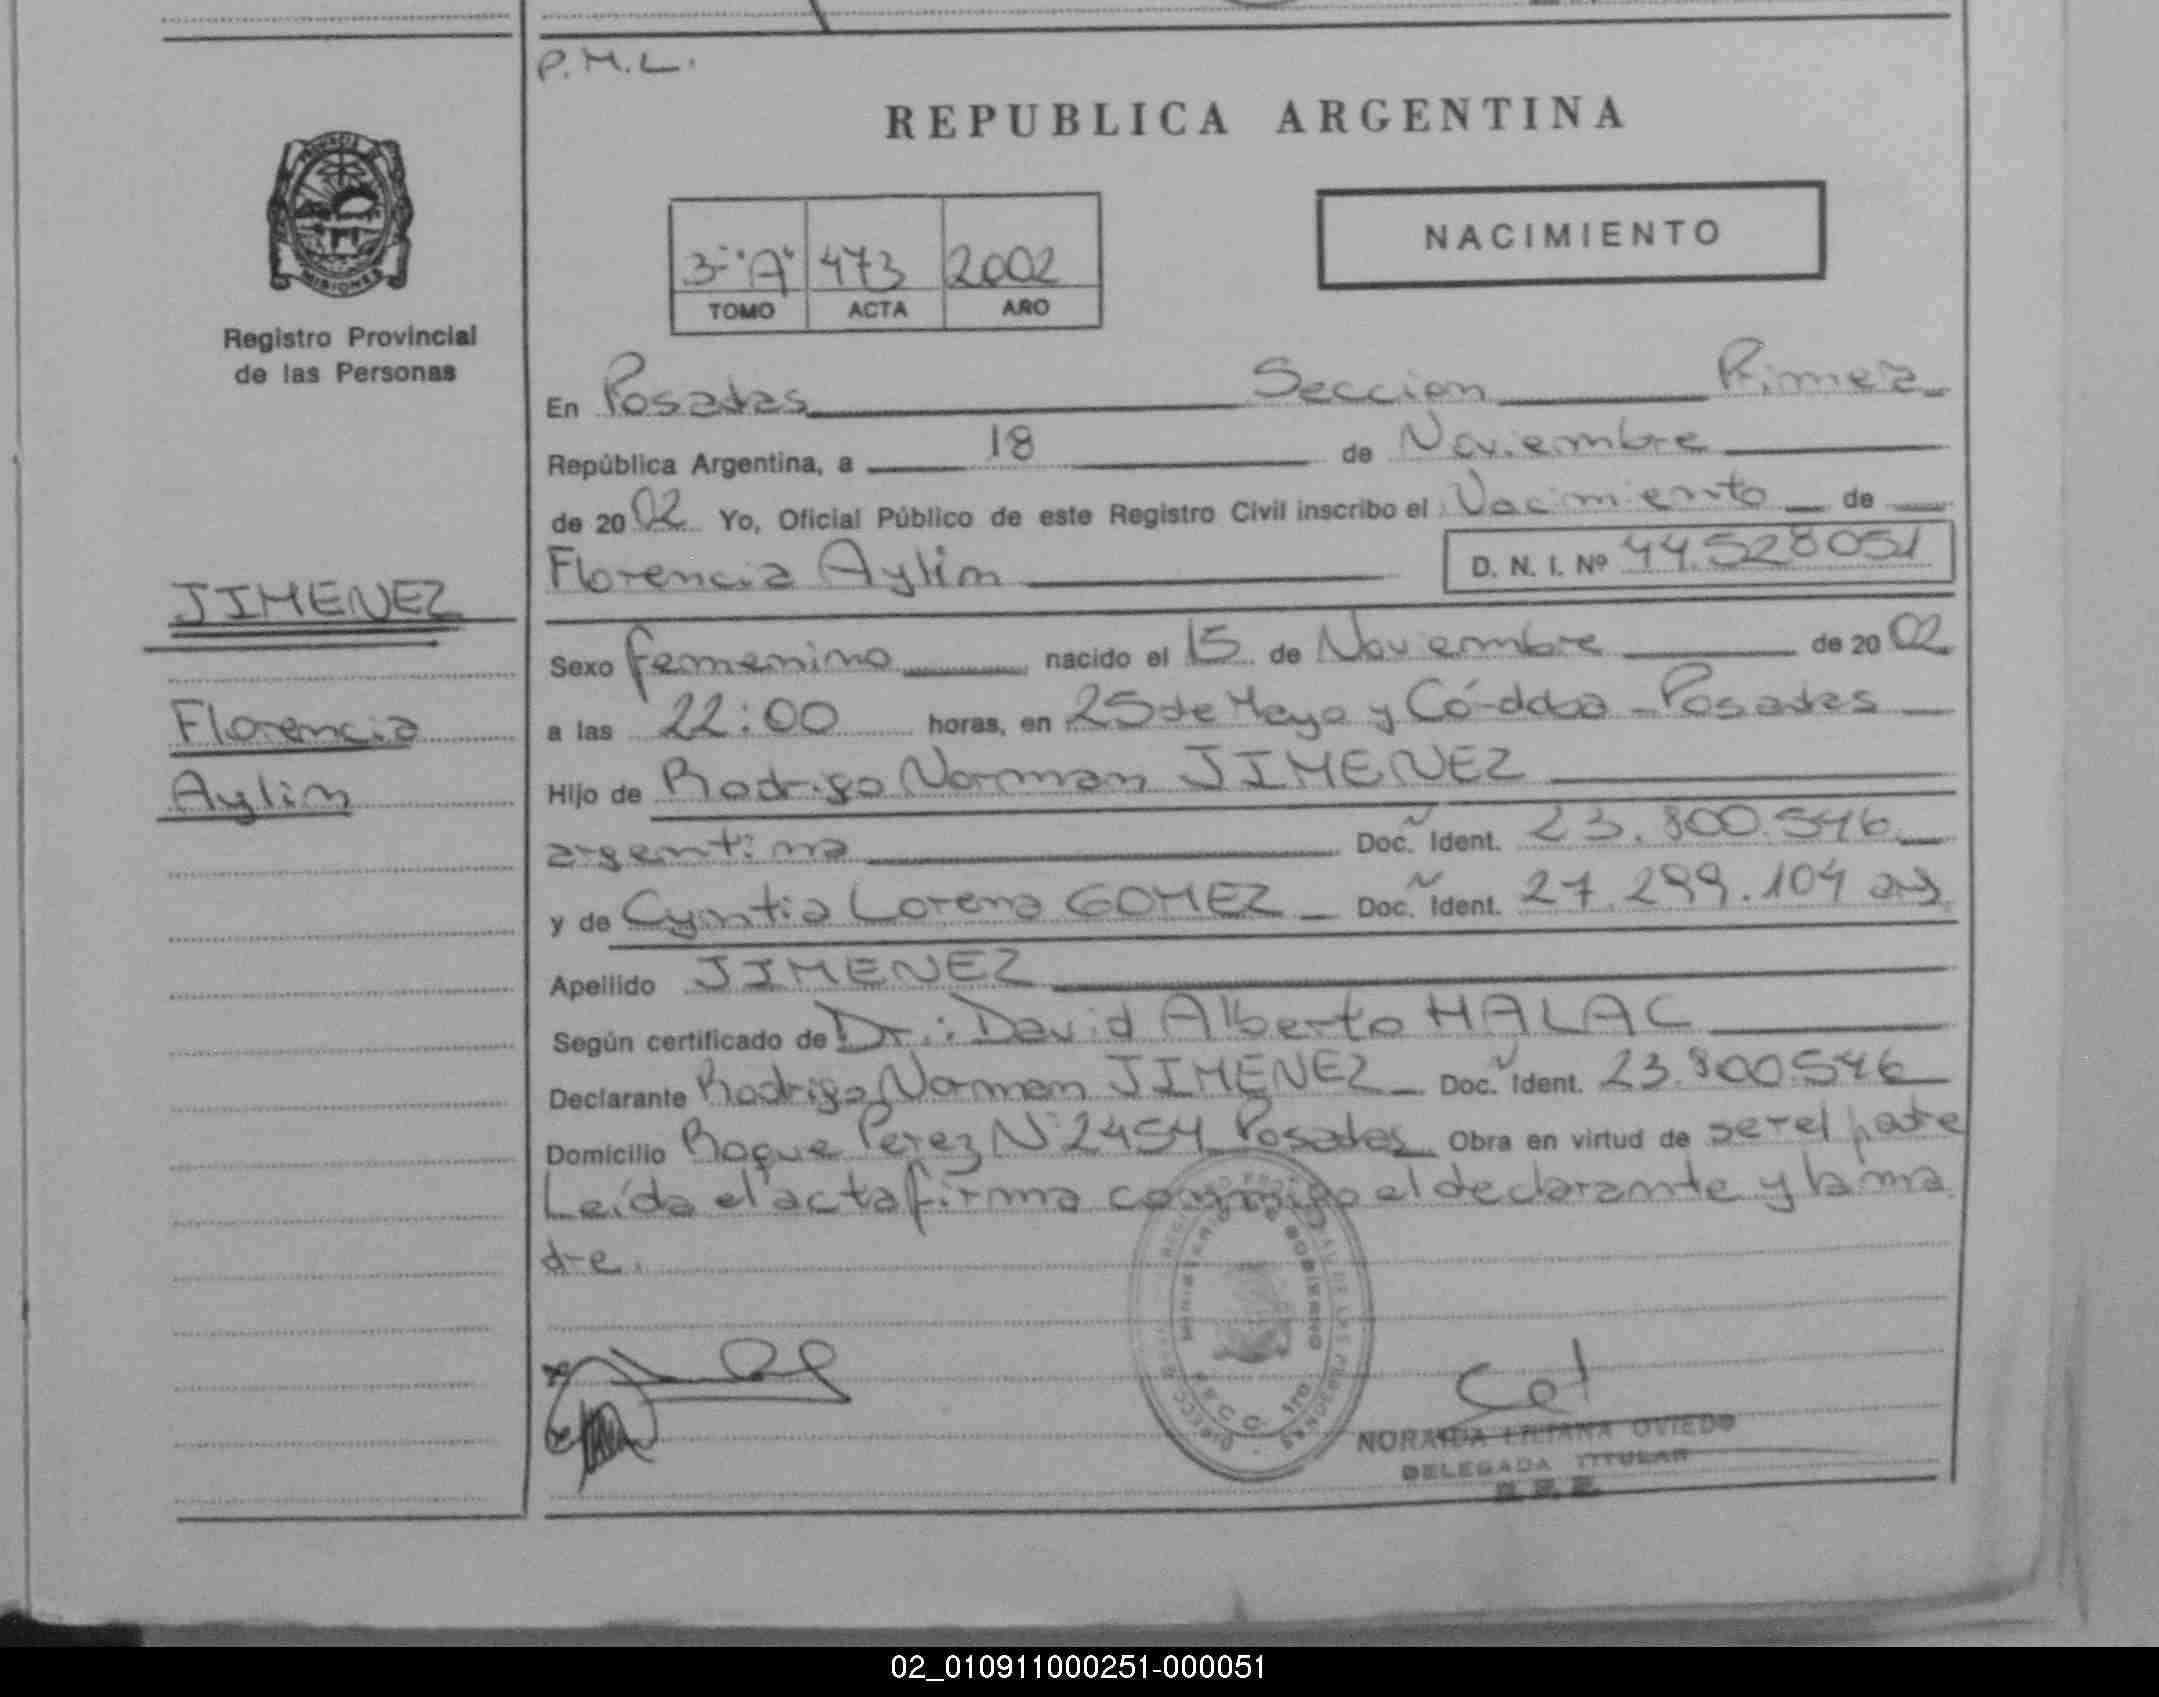 P.M.L.
REPUBLICA ARGENTINA
NACIMIENTO
3-"A" 473 2002
TOMO ACTA AÑO
MISIONES
Registro Provincial
de las Personas
En Posadas Seccion Primera
República Argentina, a 18 de Noviembre
de 2002 Yo, Oficial Público de este Registro Civil inscribo el Nacimiento de
Florencia Aylin D. N. I. Nº 44.528051
JIMENEZ
Sexo femenino nacido el 15 de Noviembre de 2002
Florencia
a las 22:00 horas, en 25 de Mayo y Córdoba - Posadas
Aylin
Hijo de Rodrigo Norman JIMENEZ
argentina Doc. Ident. 23.800.546
y de Cyntia Lorena GOMEZ Doc. Ident. 27.299.104 arg
Apellido JIMENEZ
Según certificado de Dr.: David Alberto HALAC
Declarante Rodrigo Norman JIMENEZ Doc. Ident. 23.800546
Domicilio Roque Perez Nº 2454 Posadas Obra en virtud de ser el padre
Leída el acta firma conmigo el declarante y la ma
dre.
MINISTERIO DE GOBIERNO
NORAIDA LILIANA OVIEDO
DELEGADA TITULAR
02_010911000251-000051